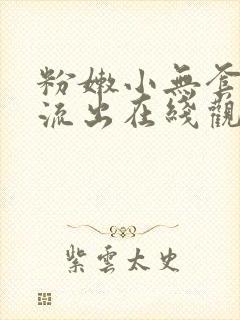 粉嫩小無套
流出在綫觀
紫雲太史